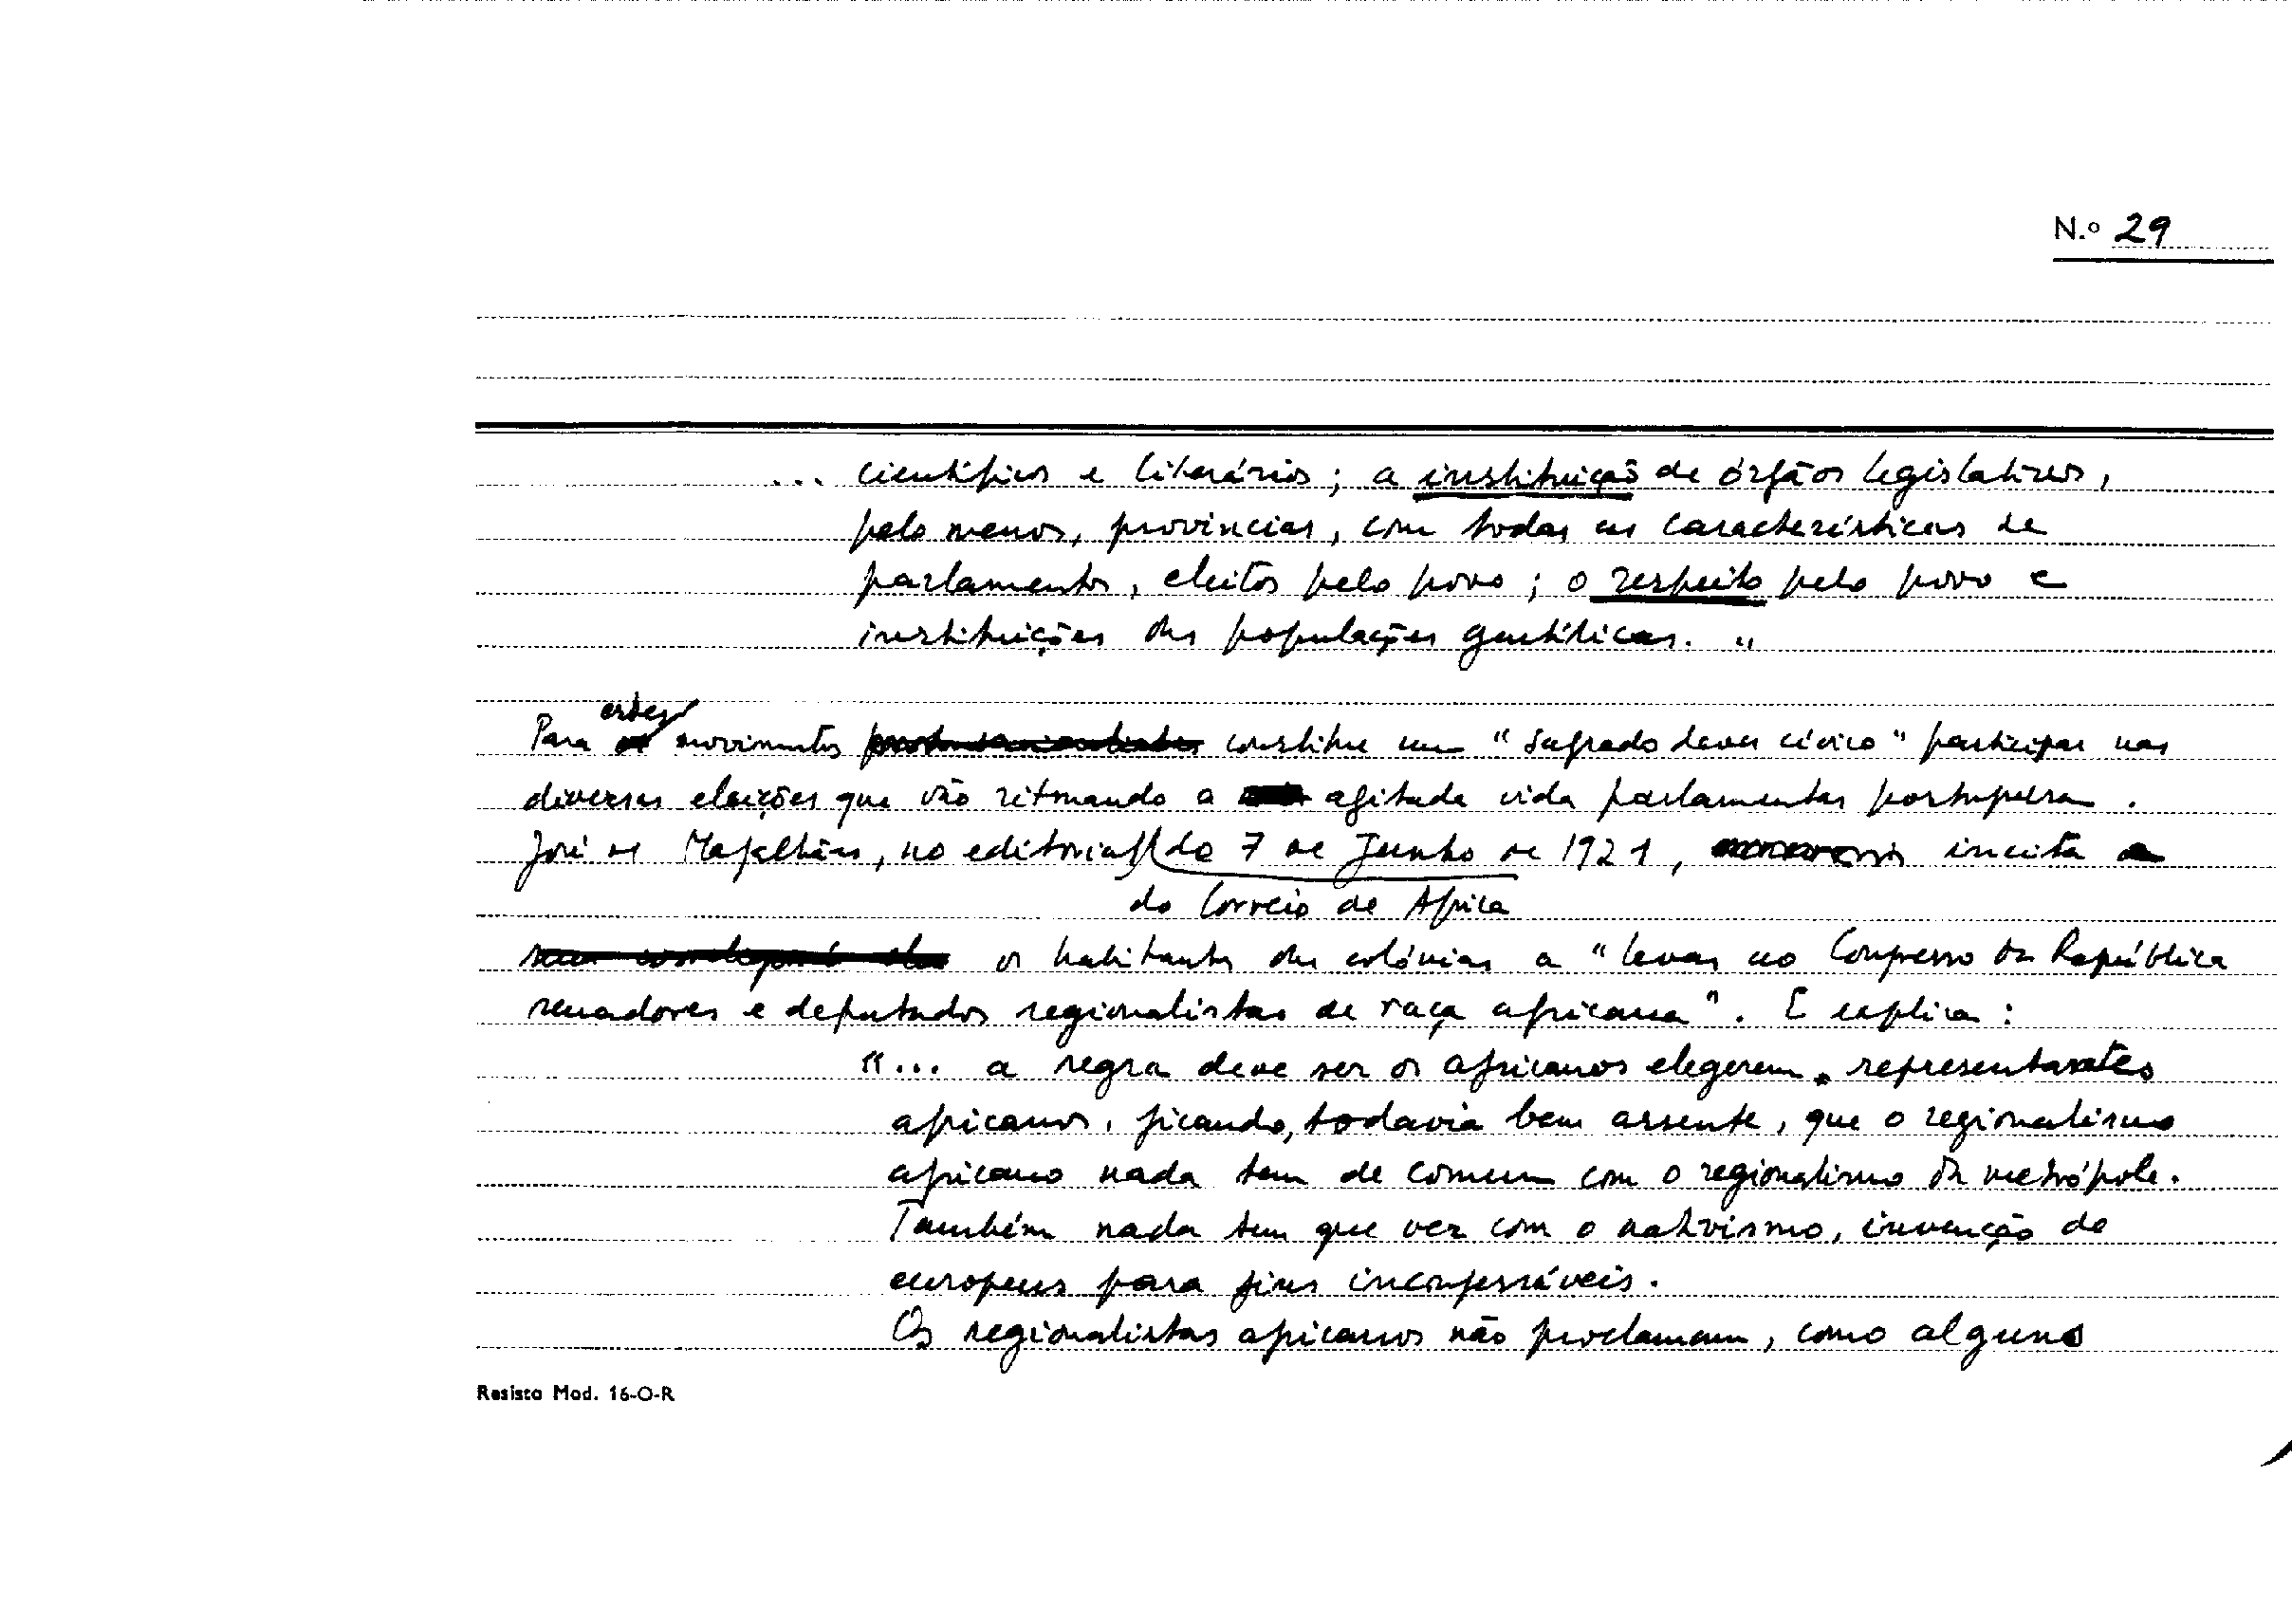 N.º 29
... científicos e literários; a instituição de órgãos legislativos,
pelo menos, provinciais, com todas as características de
parlamentos, eleitos pelo povo; o respeito pelo povo e
instituições das populações gentílicas. "
estes
Para movimentos constitue um "sagrado dever cívico" participar nas
diversas eleições que vão ritmando a agitada vida parlamentar portuguesa.
José de Magalhães, no editorial de 7 de Junho de 1921, incita
do Correio de Africa
os habitantes das colónias a "levar ao Congresso da República
senadores e deputados regionalistas de raça africana". E explica:
"... a regra deve ser os africanos elegerem representantes
africanos, ficando, todavia bem assente, que o regionalismo
africano nada tem de comum com o regionalismo da metrópole.
Também nada tem que ver com o nativismo, invenção de
europeus para fins inconfessáveis.
Os regionalistas africanos não proclamam, como alguns
Resisto Mod. 16-O-R